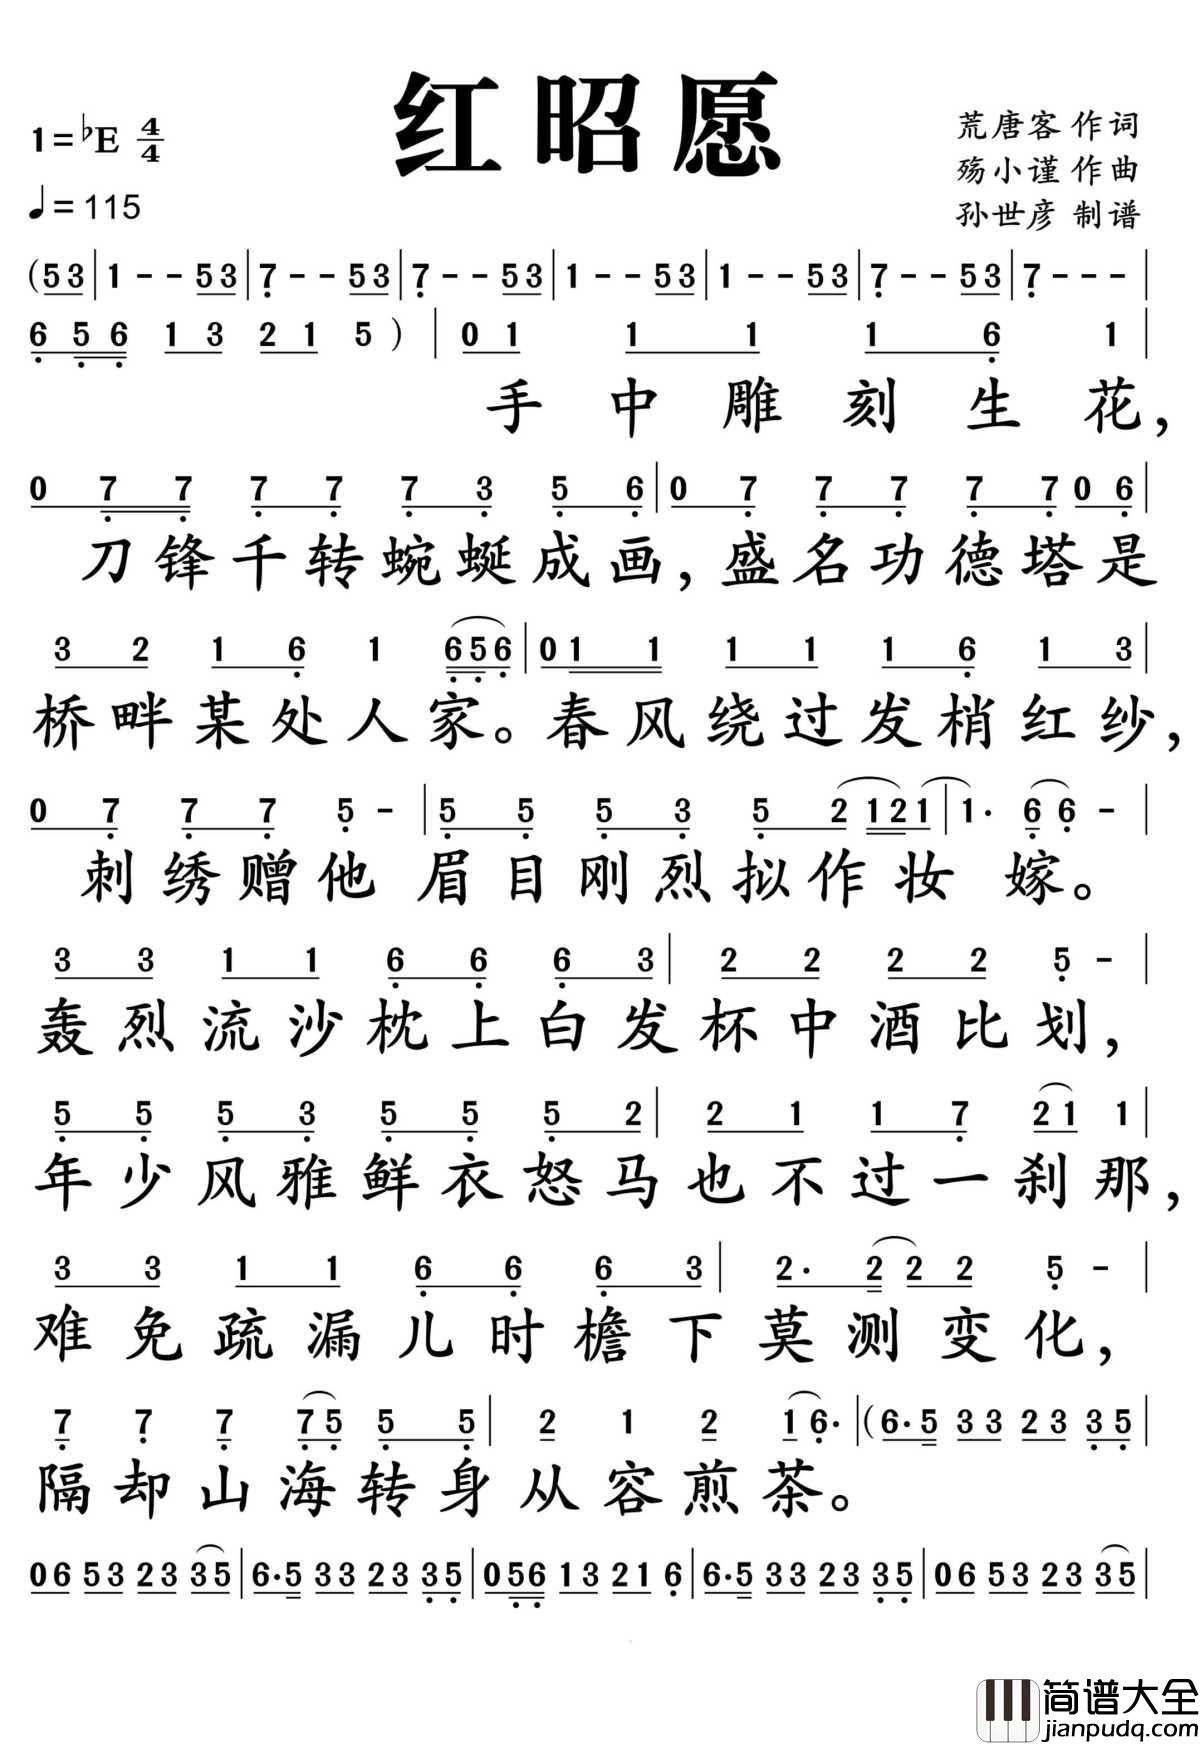 红昭愿
1=♭E 4/4
♩=115
荒唐客 作词
殇小谨 作曲
孙世彦 制谱
(53|1--53|7--53|7--53|1--53|1--53|7--53|7---|
6 56 13 21 5)|01 1 1 1 6 1|
手中雕刻生花,
0 7 7 7 7 7 3 5 6|0 7 7 7 7 7 0 6|
刀锋千转蜿蜒成画,盛名功德塔是
3 2 1 6 1 656|011 1 1 1 6 1 3|
桥畔某处人家。春风绕过发梢红纱,
0 7 7 7 5 -|5 5 5 3 5 2 121|1· 6 6 -|
刺绣赠他 眉目刚烈拟作妆 嫁。
3 3 1 1 6 6 6 3|2 2 2 2 5 -|
轰烈流沙枕上白发杯中酒比划,
5 5 5 3 5 5 5 2|2 1 1 7 21 1|
年少风雅鲜衣怒马也不过一刹那,
3 3 1 1 6 6 6 3|2· 2 2 2 5 -|
难免疏漏儿时檐下莫测变化,
7 7 7 75 5 5|2 1 2 1 6·|(6·5 33 23 35|
隔却山海转身从容煎茶。
06 53 23 35|6·5 33 23 35|056 13 21 6|6·5 33 23 35|06 53 23 35|
简谱大全
jianpudq.com